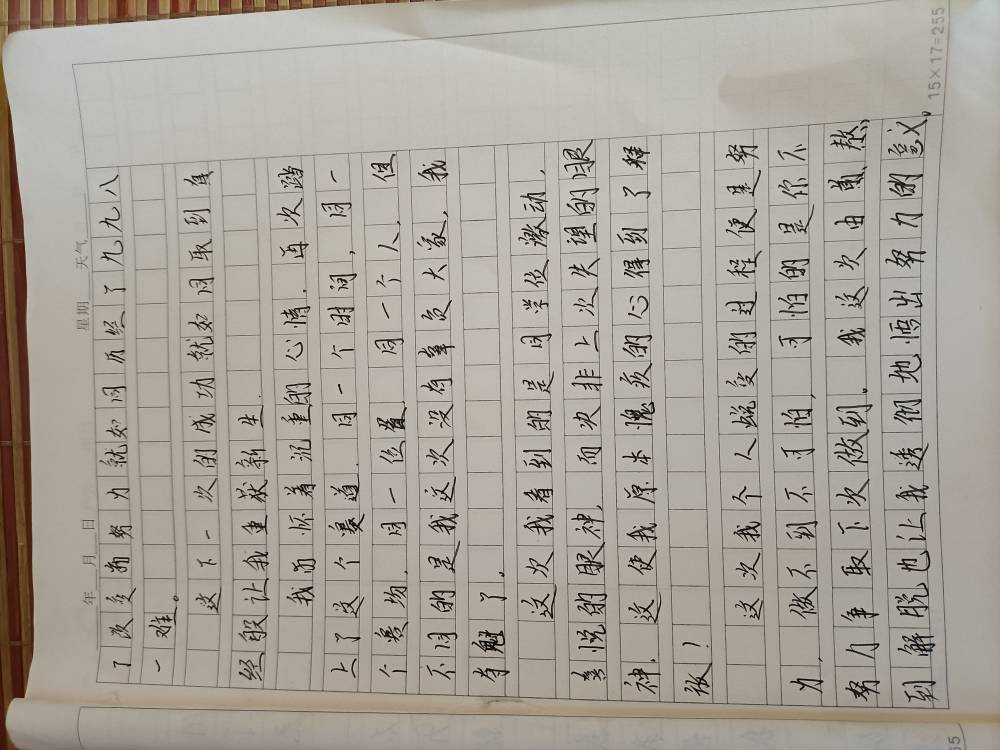 年 月 日 星期 天气
了改变而努力就如同历经了九九八
一难。
这下一次的成功就如同取到真
经般让我重获新生.
我而怀着沉重的心情.再次踏
上了这个赛道.同一个时间,同一
个赛场.同一位置.同一个人.但
不同的是我这次没有辜负大家,我
夺魁了。
这次我看到的是同学使激动.
喜悦的眼神.而决非上次失望的眼
神.这使我原本愧疚的心得到了释
放!
这次我个人蜕变的过程便是努
力.做不到不可怕,可怕的是你不
努力争取下次做到。我这次由煎熬
到解脱也让我透彻地悟出努力的意义。
15×17=255
55